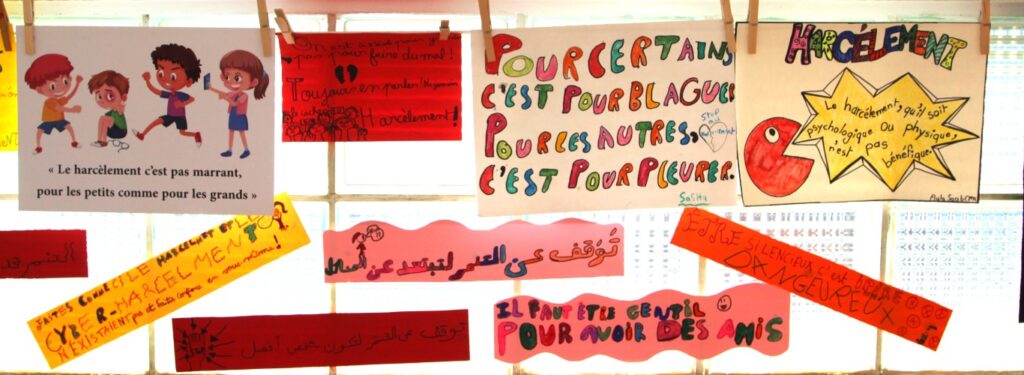 « Le harcèlement c'est pas marrant,
pour les petits comme pour les grands »
pas pour faire du mal !
Toujours en parler !
Harcèlement !
POUR CERTAINS
C'EST POUR BLAGUER
POUR LES AUTRES,
C'EST POUR PLEURER.
Stop au
SaSita
HARCÉLEMENT
Le harcèlement, qu'il soit
psychologique ou physique,
n'est pas
bénéfique.
التنمر
FAITES COMME SI LE HARCELMENT ET LE
CYBER-HARCELMENT
N'EXISTAIENT pas et faites confiance en vous même !
تَوَقف عن التنمر لتبتعد عن المشاكل
تَوقف عن التنمر لتكون شخص أفضل
IL FAUT ÊTRE GENTIL
POUR AVOIR DES AMIS
ETRE SILENCIEUX C'est ÊTRE
DANGEUREUX